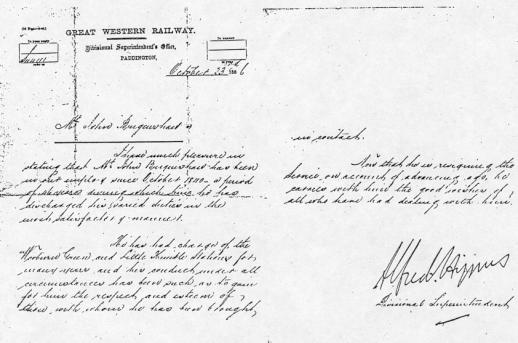 GREAT WESTERN RAILWAY.
Divisional Superintendent's Office,
PADDINGTON,
October 23rd 1886
Mr John
I have much pleasure in
stating that Mr John has been
in our employ since October 1840 a period
of 46 years during which time he has
discharged his varied duties in the
most satisfactory manner.
He has had charge of the
Wooburn Green and Little Kimble Stations for
many years and his conduct under all
circumstances has been such, as to gain
for him the respect and esteem of
those with whom he has been brought,
in contact.
Now that he is resigning the
service, on account of advancing age, he
carries with him the good wishes of
all who have had dealing with him.
Alfred Higgins
Divisional Superintendent